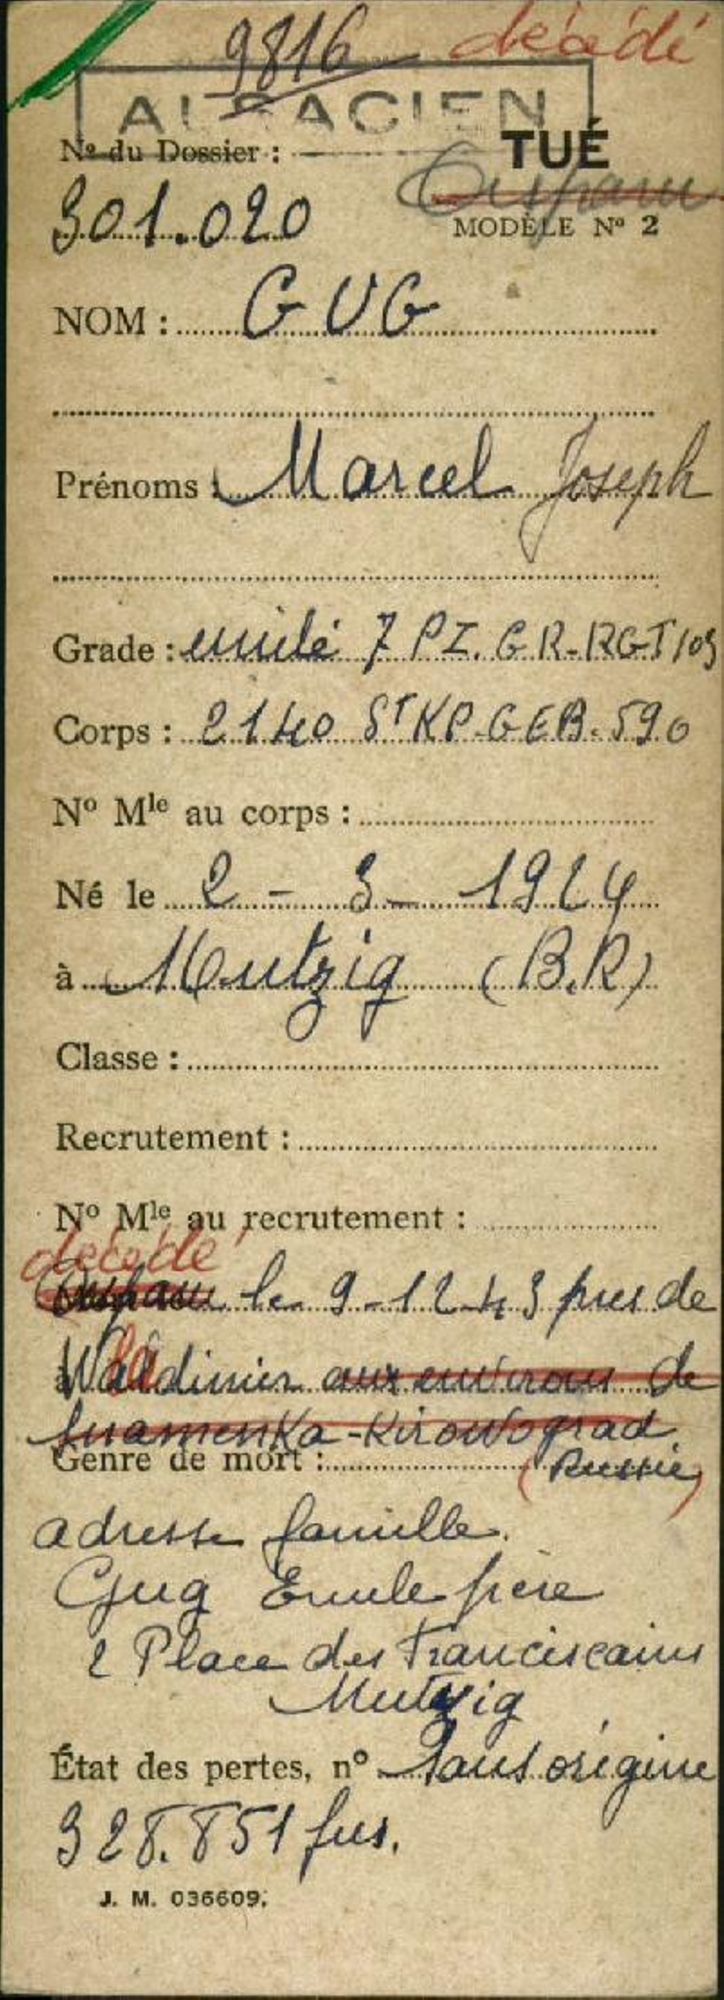 9816 décédé
ALSACIEN
No du Dossier : TUÉ
301.020 Disparu
MODÈLE No 2
NOM : GUG
Prénoms : Marcel Joseph
Grade : unité 7 PZ. GR-RGT 103
Corps : 2140 St KP-GEB. 590
No Mle au corps :
Né le 2 - 3 - 1924
à Mutzig (B.R)
Classe :
Recrutement :
No Mle au recrutement :
décédé
Disparu le 9-12 43 près de
à Waldimier aux environs de
Snamenka-Kirowograd
Genre de mort : (Russie)
adresse famille.
Gug Emile père
2 Place des Franciscains
Mutzig
État des pertes, no Sans origine
328.851 fus.
J. M. 036609.